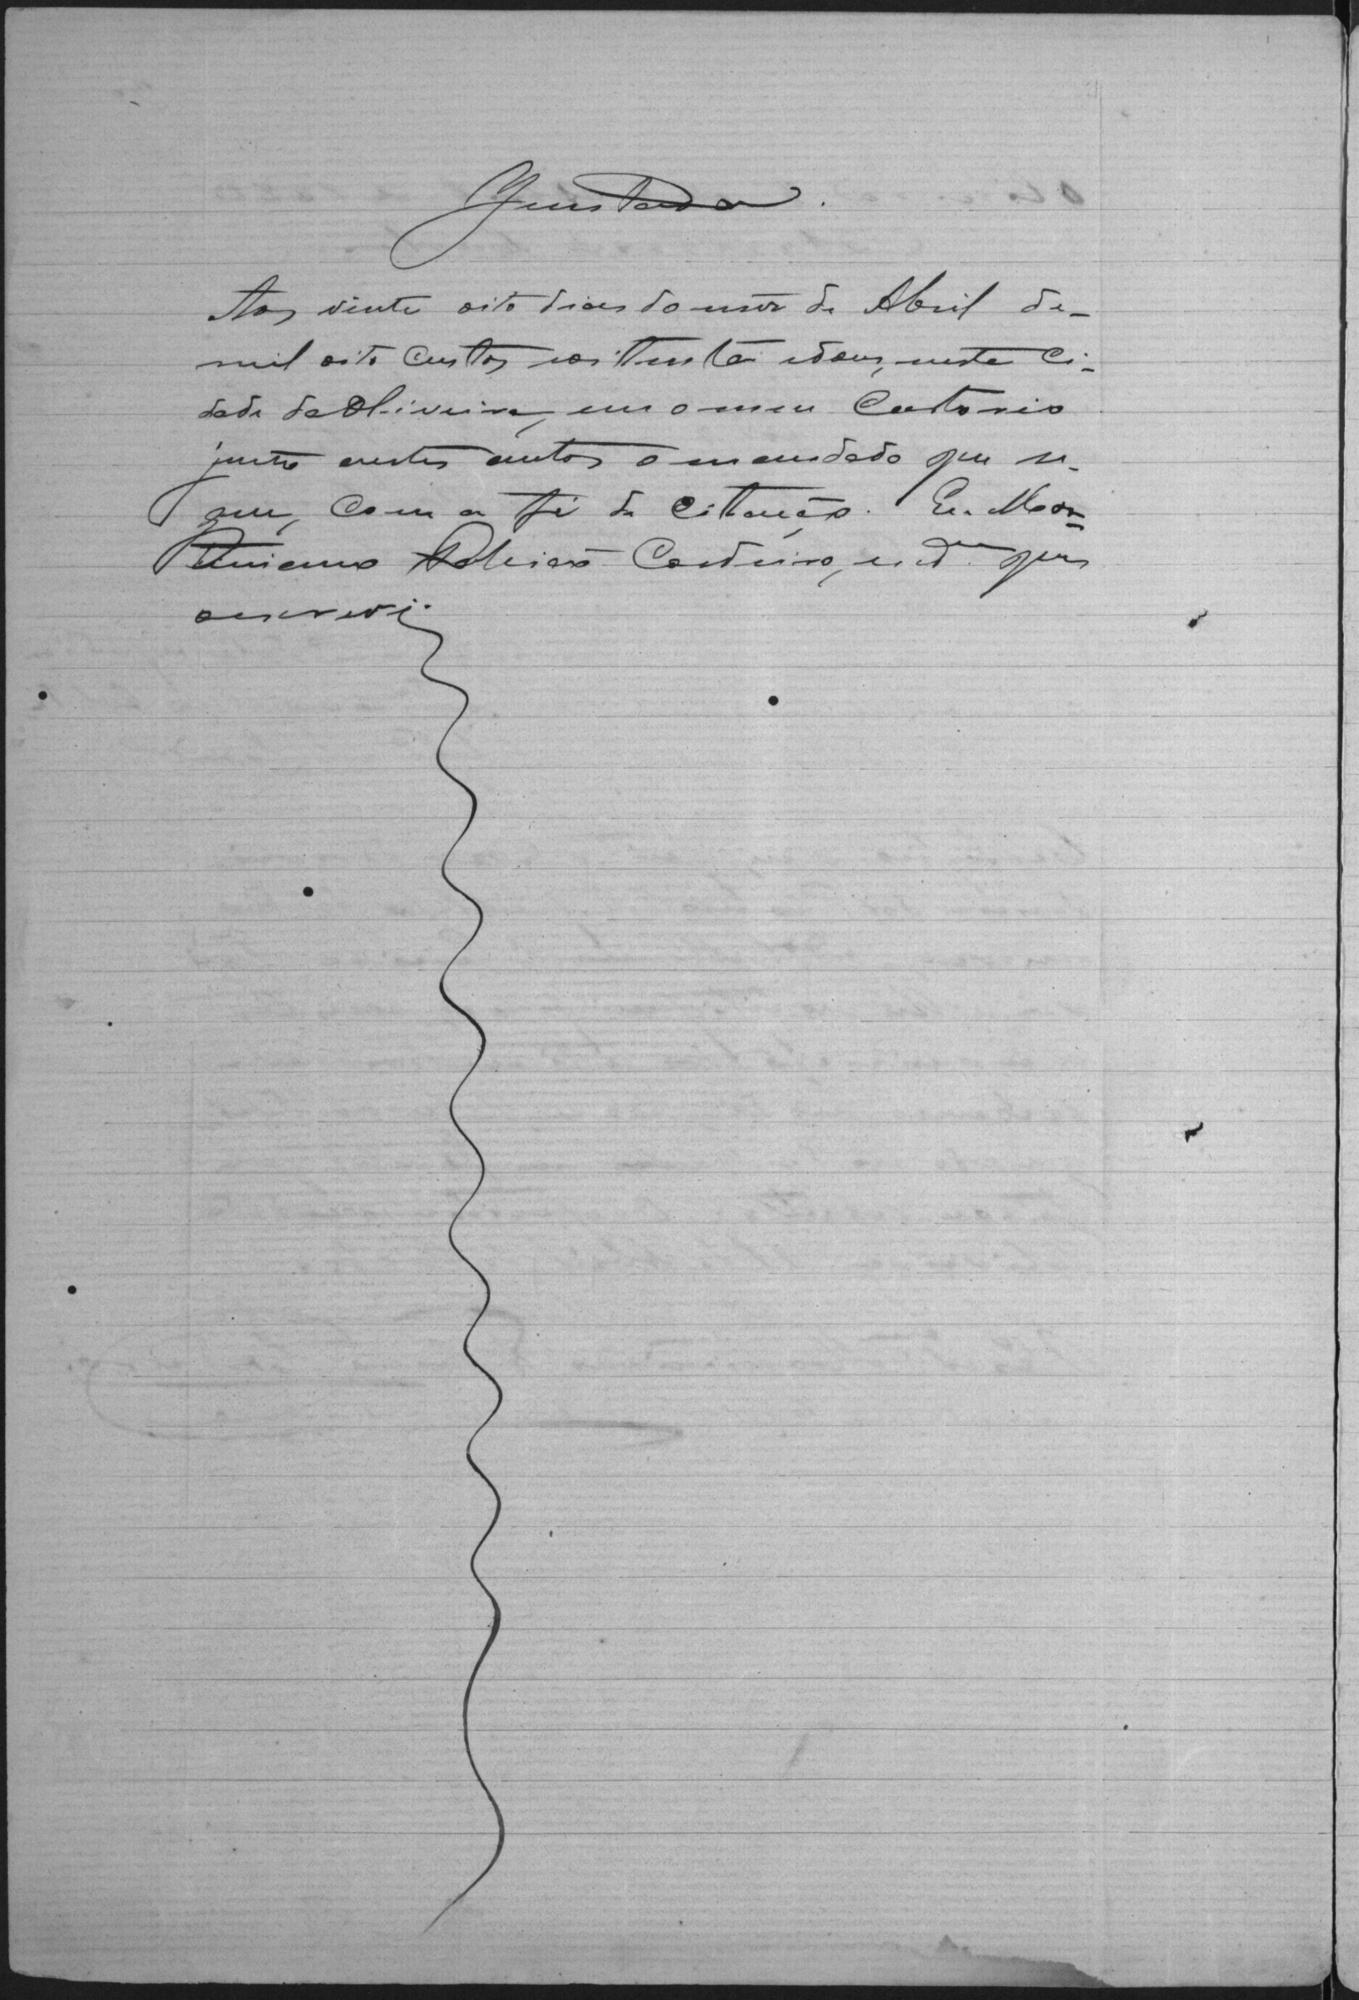 Juntada.
Aos vinte oito dias do mez de Abril de-
mil oito centos eoitenta edous, nesta Ci-
dade da Oliveira, em o meu Cartorio
junto aestes autos o mandado que se-
gue, com a fé da citação. Eu
Cordeiro, que
oescrevi.